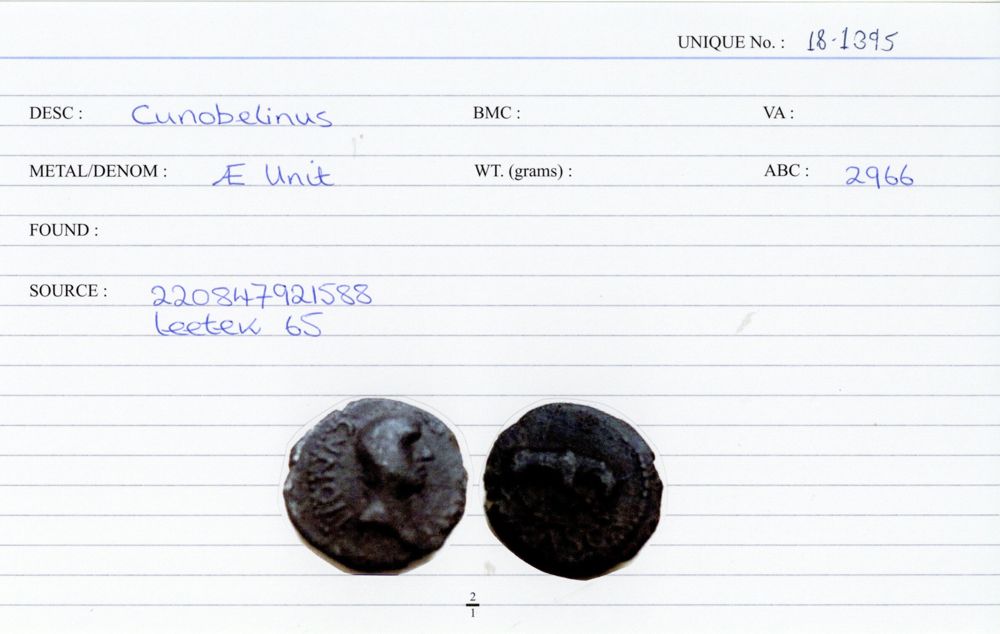 UNIQUE No. : 18-1395
DESC : Cunobelinus BMC : VA :
METAL/DENOM : Æ Unit WT. (grams) : ABC : 2966
FOUND :
SOURCE : 220847921588
leetek 65
2
1